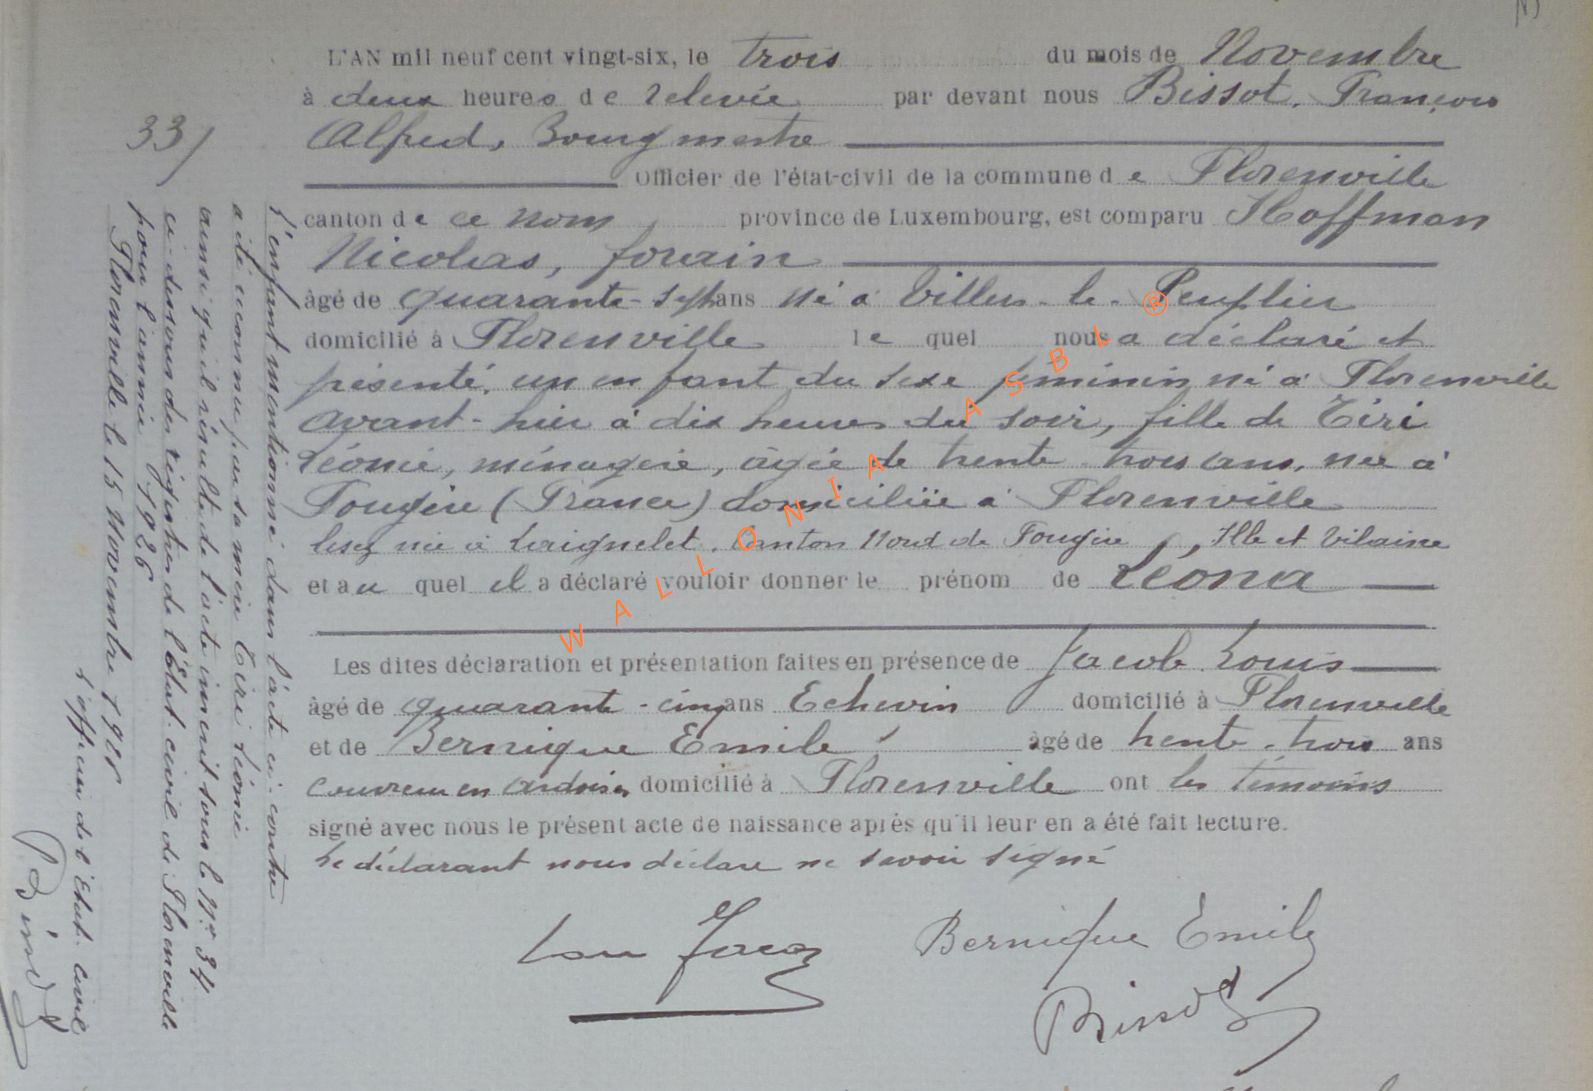 33/
L'AN mil neuf cent vingt-six, le trois du mois de Novembre
à deux heures de relevée par devant nous Bissot, François
Alfred, Bourgmestre
Officier de l'état-civil de la commune de Florenville
canton de ce nom province de Luxembourg, est comparu Hoffman
Nicolas, forain
âgé de quarante-sept ans né à Villers-le-Peuplier
domicilié à Florenville lequel nous a déclaré et
présenté, un enfant du sexe féminin né à Florenville
avant-hier à dix heures du soir, fille de Tiri
Léonie, ménagère, âgée de trente-trois ans, née à
Fougère (France) domiciliée à Florenville
lisez née à Laignelet, Canton Nord de Fougère, Ille et Vilaine
et au quel il a déclaré vouloir donner le prénom de Léona
Les dites déclaration et présentation faites en présence de Jacob Louis
âgé de quarante-cinq ans Echevin domicilié à Florenville
et de Bernique Emile âgé de trente-trois ans
couvreur en ardoises domicilié à Florenville ont les témoins
signé avec nous le présent acte de naissance après qu'il leur en a été fait lecture.
Le déclarant nous déclare ne savoir signé
Jacob
Bernique Emile
Bissot
L'enfant mentionné dans l'acte ci-contre
a été reconnu par sa mère Tiri Léonie
ainsi qu'il résulte de l'acte inscrit sous le N° 34
ci-dessous des registres de l'Etat-civil de Florenville
pour l'année 1926
Florenville le 15 Novembre 1926
L'officier de l'Etat-civil
Bissot
WALLONIA ASBL ®